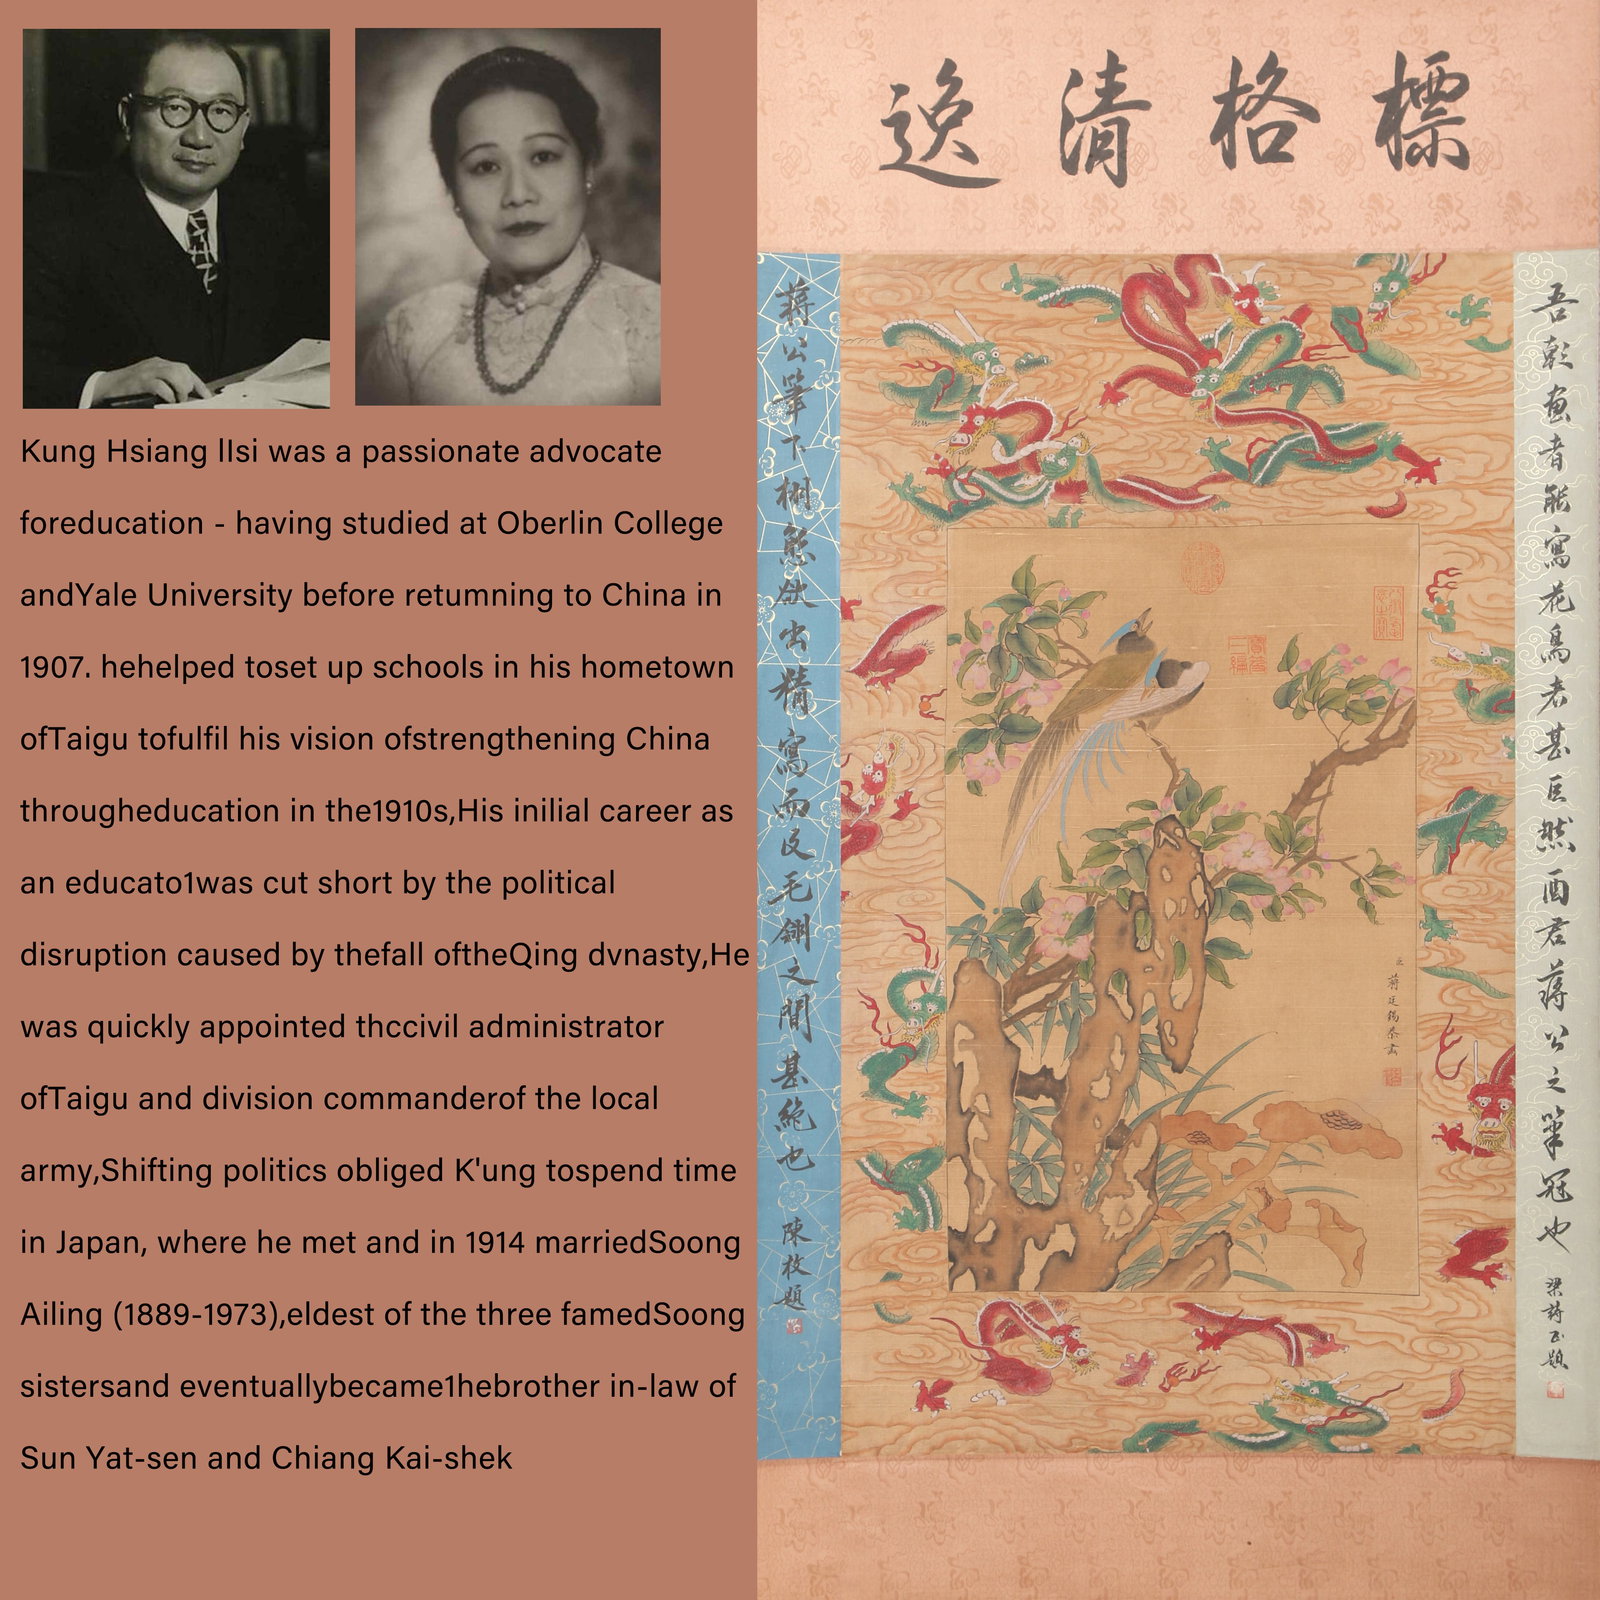 Kung Hsiang lIsi was a passionate advocate
foreducation - having studied at Oberlin College
andYale University before retumning to China in
1907. hehelped toset up schools in his hometown
ofTaigu tofulfil his vision ofstrengthening China
througheducation in the1910s,His inilial career as
an educato1was cut short by the political
disruption caused by thefall oftheQing dvnasty,He
was quickly appointed thccivil administrator
ofTaigu and division commanderof the local
army,Shifting politics obliged K'ung tospend time
in Japan, where he met and in 1914 marriedSoong
Ailing (1889-1973),eldest of the three famedSoong
sistersand eventuallybecame1hebrother in-law of
Sun Yat-sen and Chiang Kai-shek
標格清逸
吾彩畫者能寫花鳥者甚巨然酉君蔣公之筆冠也
梁詩正題
臣蔣廷錫恭畫
蔣公筆下栩態欲出精寫而及毛翎之間甚絶也
陳枚題